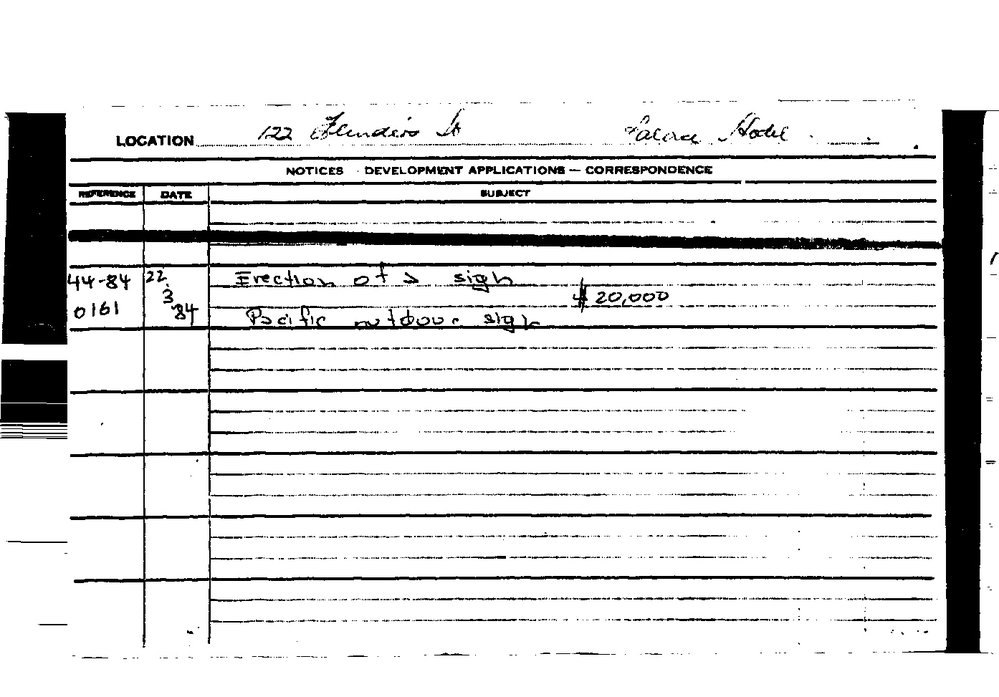 LOCATION 122 Flinders St Palace Hotel
NOTICES DEVELOPMENT APPLICATIONS — CORRESPONDENCE
REFERENCE DATE SUBJECT
44-84 22. Erection of a sign
3 $20,000
0161 84 Pacific outdoor sign